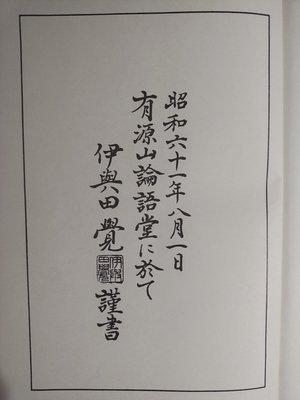 昭和六十一年八月一日
有源山論語堂に於て
伊與田覺 謹書